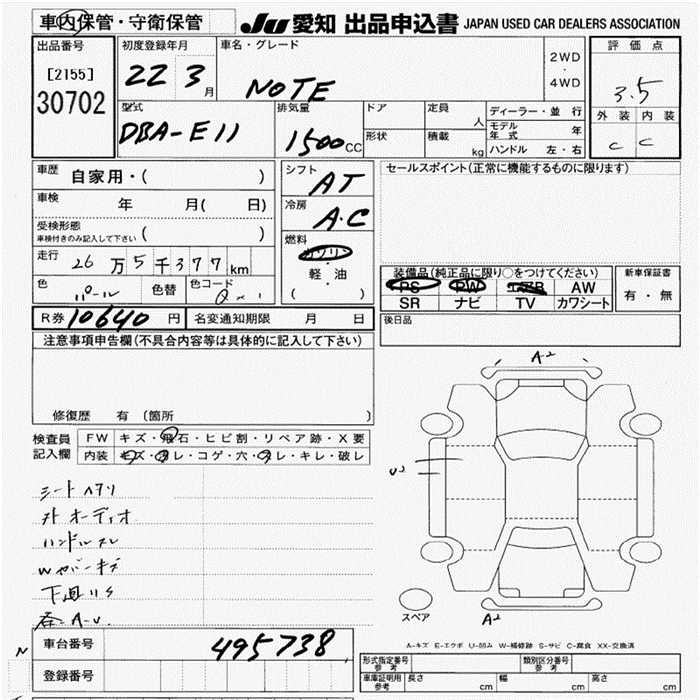 車内保管・守衛保管 JU 愛知 出品申込書 JAPAN USED CAR DEALERS ASSOCIATION
出品番号
[2155]
30702
初度登録年月
22 3月
車名・グレード
NOTE
2WD
・
4WD
評価点
3.5
外装 内装
C C
型式
DBA-E11
排気量
1500CC
ドア
定員 人
形状
積載 kg
ディーラー・並行
モデル年式 年
ハンドル 左・右
車歴
自家用・( )
車検 年 月( 日)
受検形態
車検付きのみ記入して下さい ( )
走行 26万5千377km
色 パール 色替 色コード
シフト
AT
冷房
A.C
燃料
ガソリン
軽・油
( )
セールスポイント(正常に機能するものに限ります)
装備品(純正品に限り○をつけてください)
PS PW エアB AW
SR ナビ TV カワシート
新車保証書
有・無
R券 10640円 名変通知期限 月 日
後日品
注意事項申告欄(不具合内容等は具体的に記入して下さい)
修復歴 有 (箇所 )
検査員記入欄
FW キズ・飛石・ヒビ割・リペア跡・X要
内装 キズ・ヨレ・コゲ・穴・スレ・キレ・破レ
シートヘタリ
外オーディオ
ハンドルスレ
下回りS
A-2
U2
スペア
A2
A-キズ E-エクボ U-凹み W-補修跡 S-サビ C-腐食 XX-交換済
N
車台番号 495738
登録番号
形式指定番号 参考
類別区分番号 参考
車庫証明用 参考 長さ cm 幅 cm 高さ cm